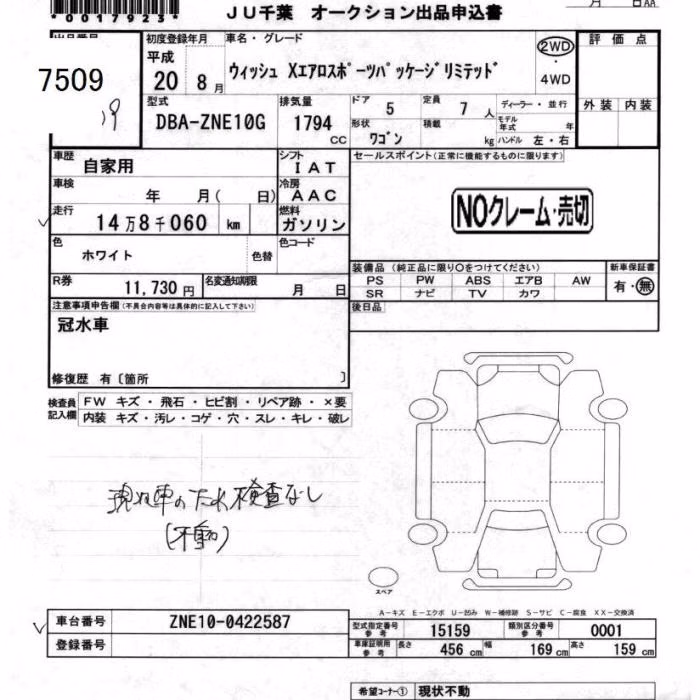 *0017923*
JU千葉 オークション出品申込書
月 日AA
出品番号
7509
19
初度登録年月
平成
20 8 月
車名・グレード
ウィッシュ Xエアロスポーツパッケージリミテッド
2WD
・
4WD
評価点
外装 内装
型式
DBA-ZNE10G
排気量
1794
CC
ドア
5
定員
7 人
形状
ワゴン
積載
kg
ディーラー・並行
モデル年式 年
ハンドル 左・右
車歴
自家用
シフト
IAT
セールスポイント(正常に機能するものに限ります)
車検
年 月( 日)
冷房
AAC
走行
14万8千060 km
燃料
ガソリン
NOクレーム・売切
色
ホワイト
色替
色コード
R券
11,730円
名変通知期限
月 日
装備品 (純正品に限り〇をつけてください)
PS PW ABS エアB AW
SR ナビ TV カワ
新車保証書
有・無
後日品
注意事項申告欄(不具合内容等は具体的に記入して下さい)
冠水車
修復歴 有〔箇所 〕
検査員記入欄
FW キズ・飛石・ヒビ割・リペア跡・×要
内装 キズ・汚レ・コゲ・穴・スレ・キレ・破レ
現状車のため検査なし
(不動)
スペア
A-キズ E-エクボ U-凹み W-補修跡 S-サビ C-腐食 XX-交換済
車台番号 ZNE10-0422587
登録番号
型式指定番号参考 15159
類別区分番号参考 0001
車庫証明用参考
長さ 456 cm
幅 169 cm
高さ 159 cm
希望コーナー① 現状不動